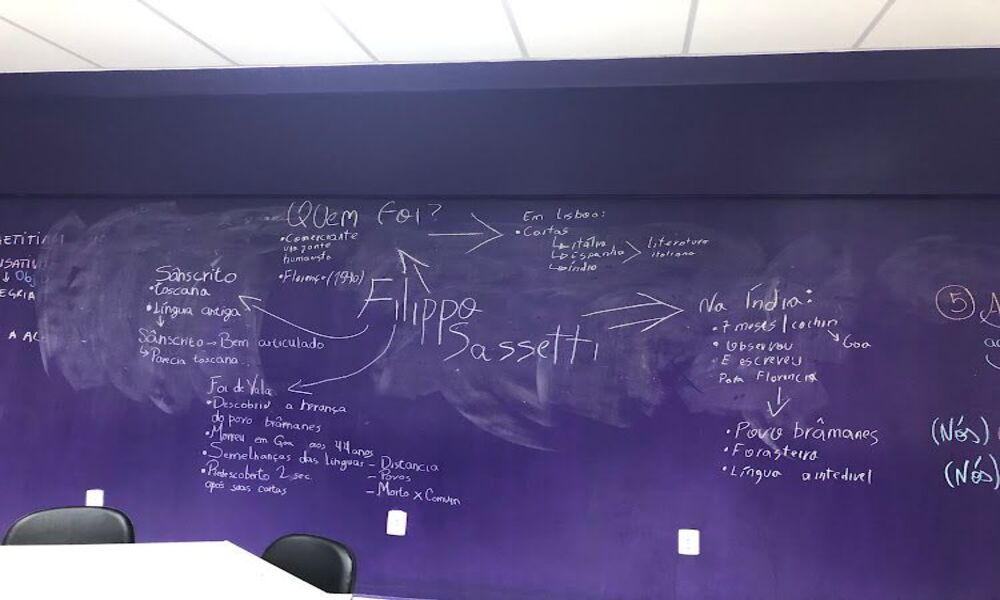 Quem foi?
• Comerciante
viajante
humanista
• Florença (1540)
Em Lisboa:
• Cartas
↳ Itália
↳ Espanha
↳ Índia
literatura
italiana
Filippo
Sassetti
Sânscrito
• toscana
• Língua antiga
Sânscrito → Bem articulado
↳ Parecia toscana
Foi de Vala
• Descobriu a herança
do povo brâmanes
• Morreu em Goa aos 44 anos
• Semelhanças das línguas
– Distancia
– Povos
– Morto x Comum
• Redescoberto 2 sec.
após suas cartas
Na Índia:
• 7 meses | cochin
↳ Goa
• Observou
• E escreveu
Para Florencia
• Povo brâmanes
• Forasteiro
• Língua
5
(Nós)
(Nós)